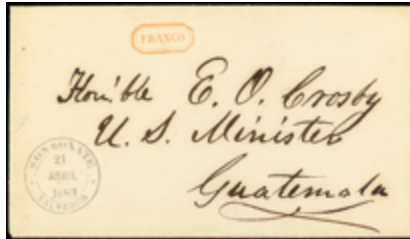 FRANCO
Hon'ble E. O. Crosby
U. S. Minister
Guatemala
SONSONATE
21
ABRIL
SALVADOR